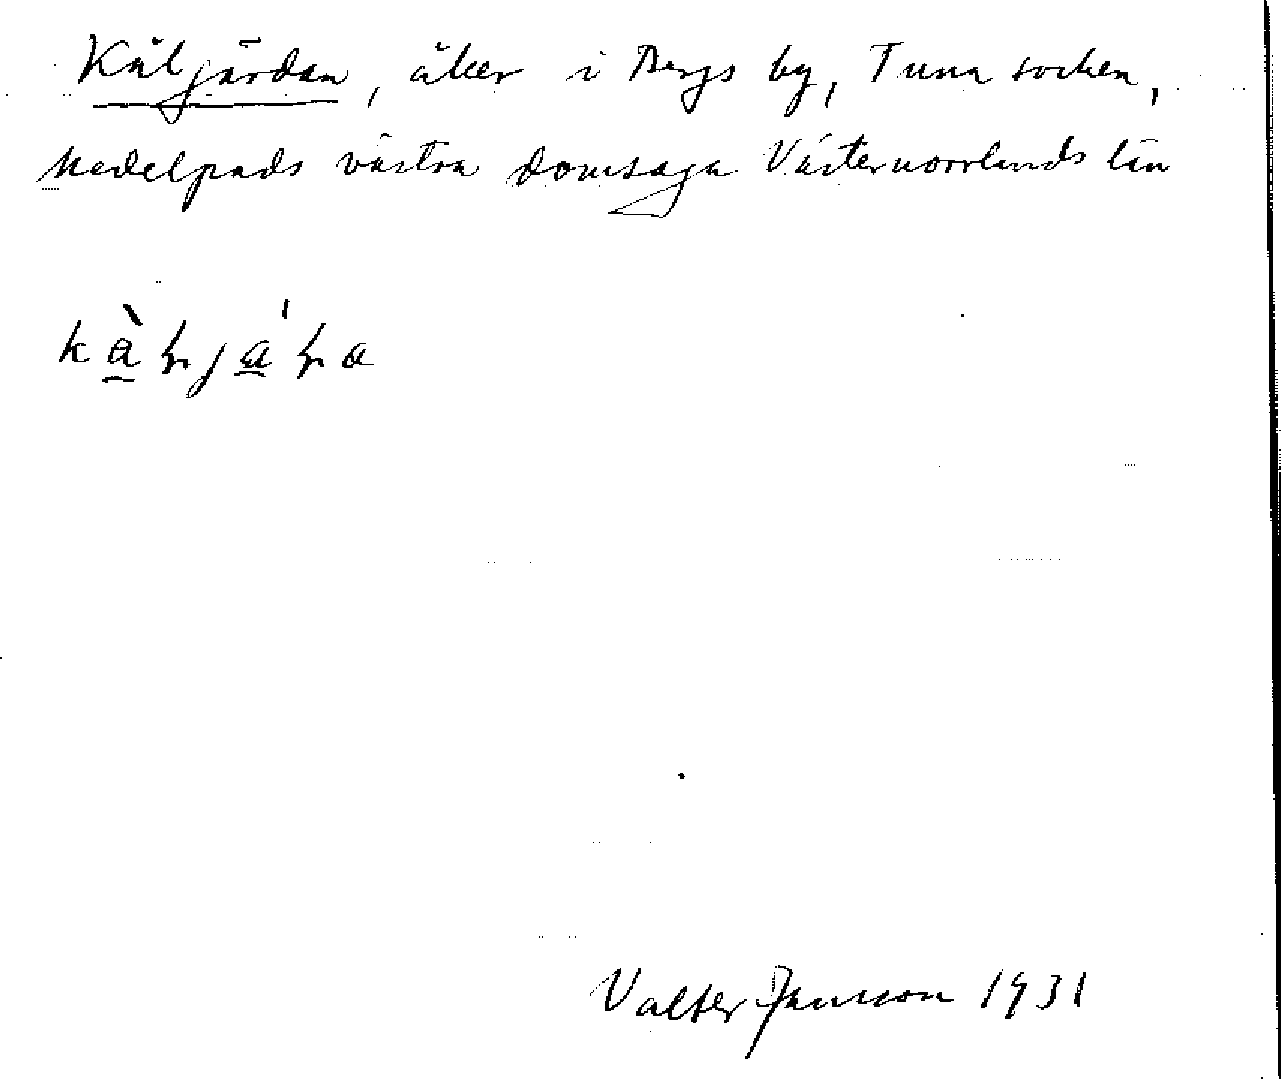 Kålgärdan, åker i Bergs by, Tuna socken,
Medelpads västra domsaga Västernorrlands län
Valter Jansson 1931